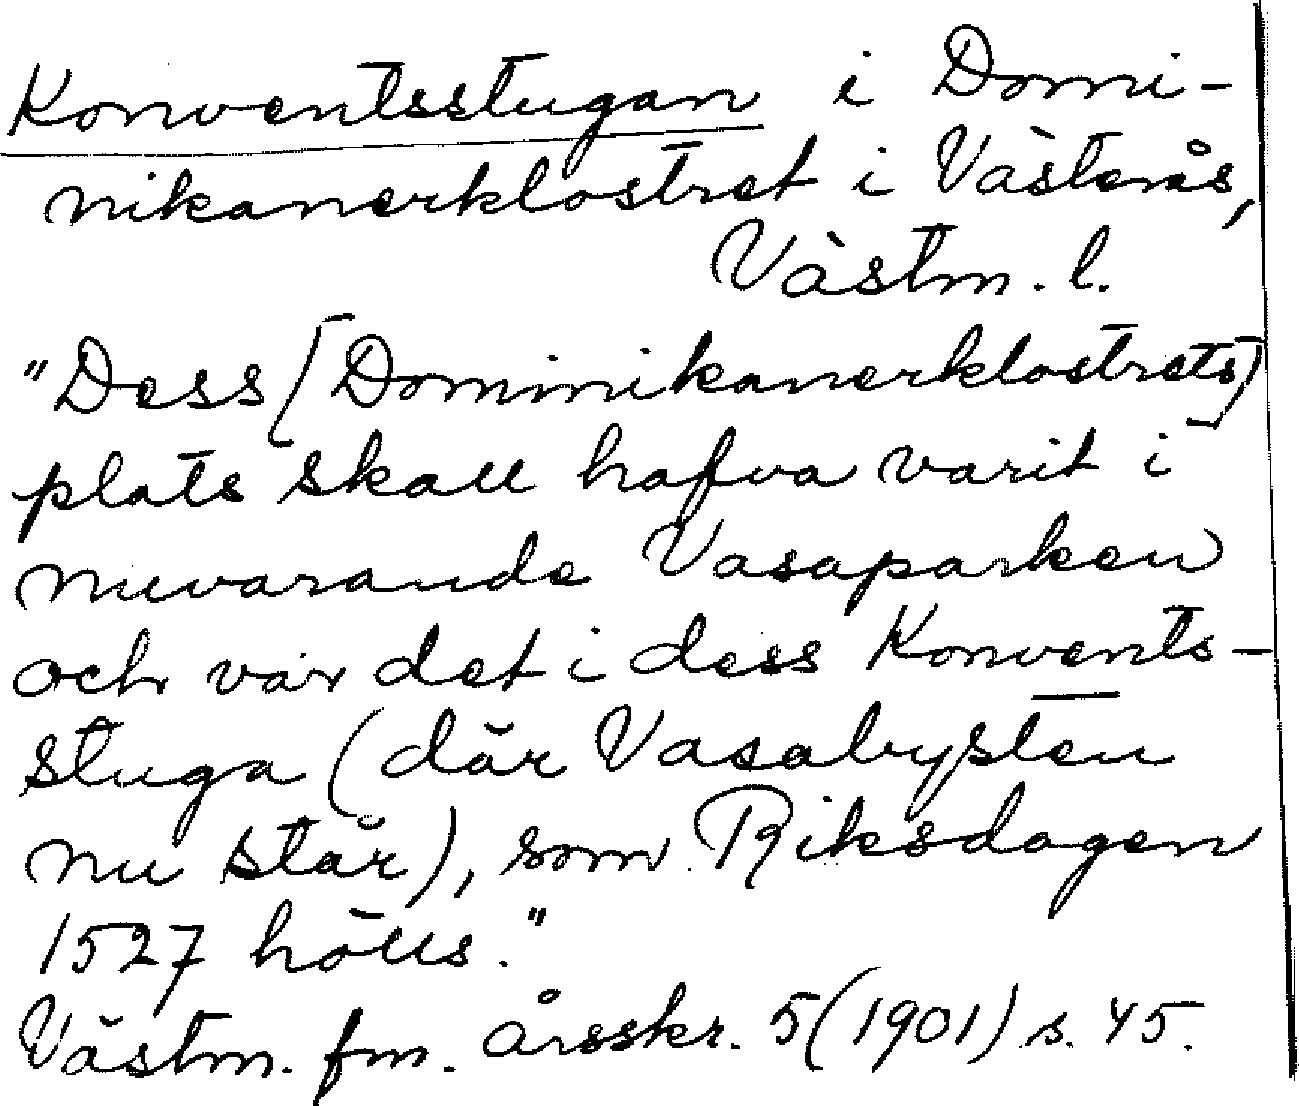 Konventsstugan i Domi-
nikanerklostret i Västerås,
Västm. l.
"Dess [Dominikanerklostrets]
plats skall hafva varit i
nuvarande Vasaparken
och var det i dess Konvents-
stuga (där Vasabysten
nu står), som Riksdagen
1527 hölls."
Västm. fm. årsskr. 5 (1901) s. 45.